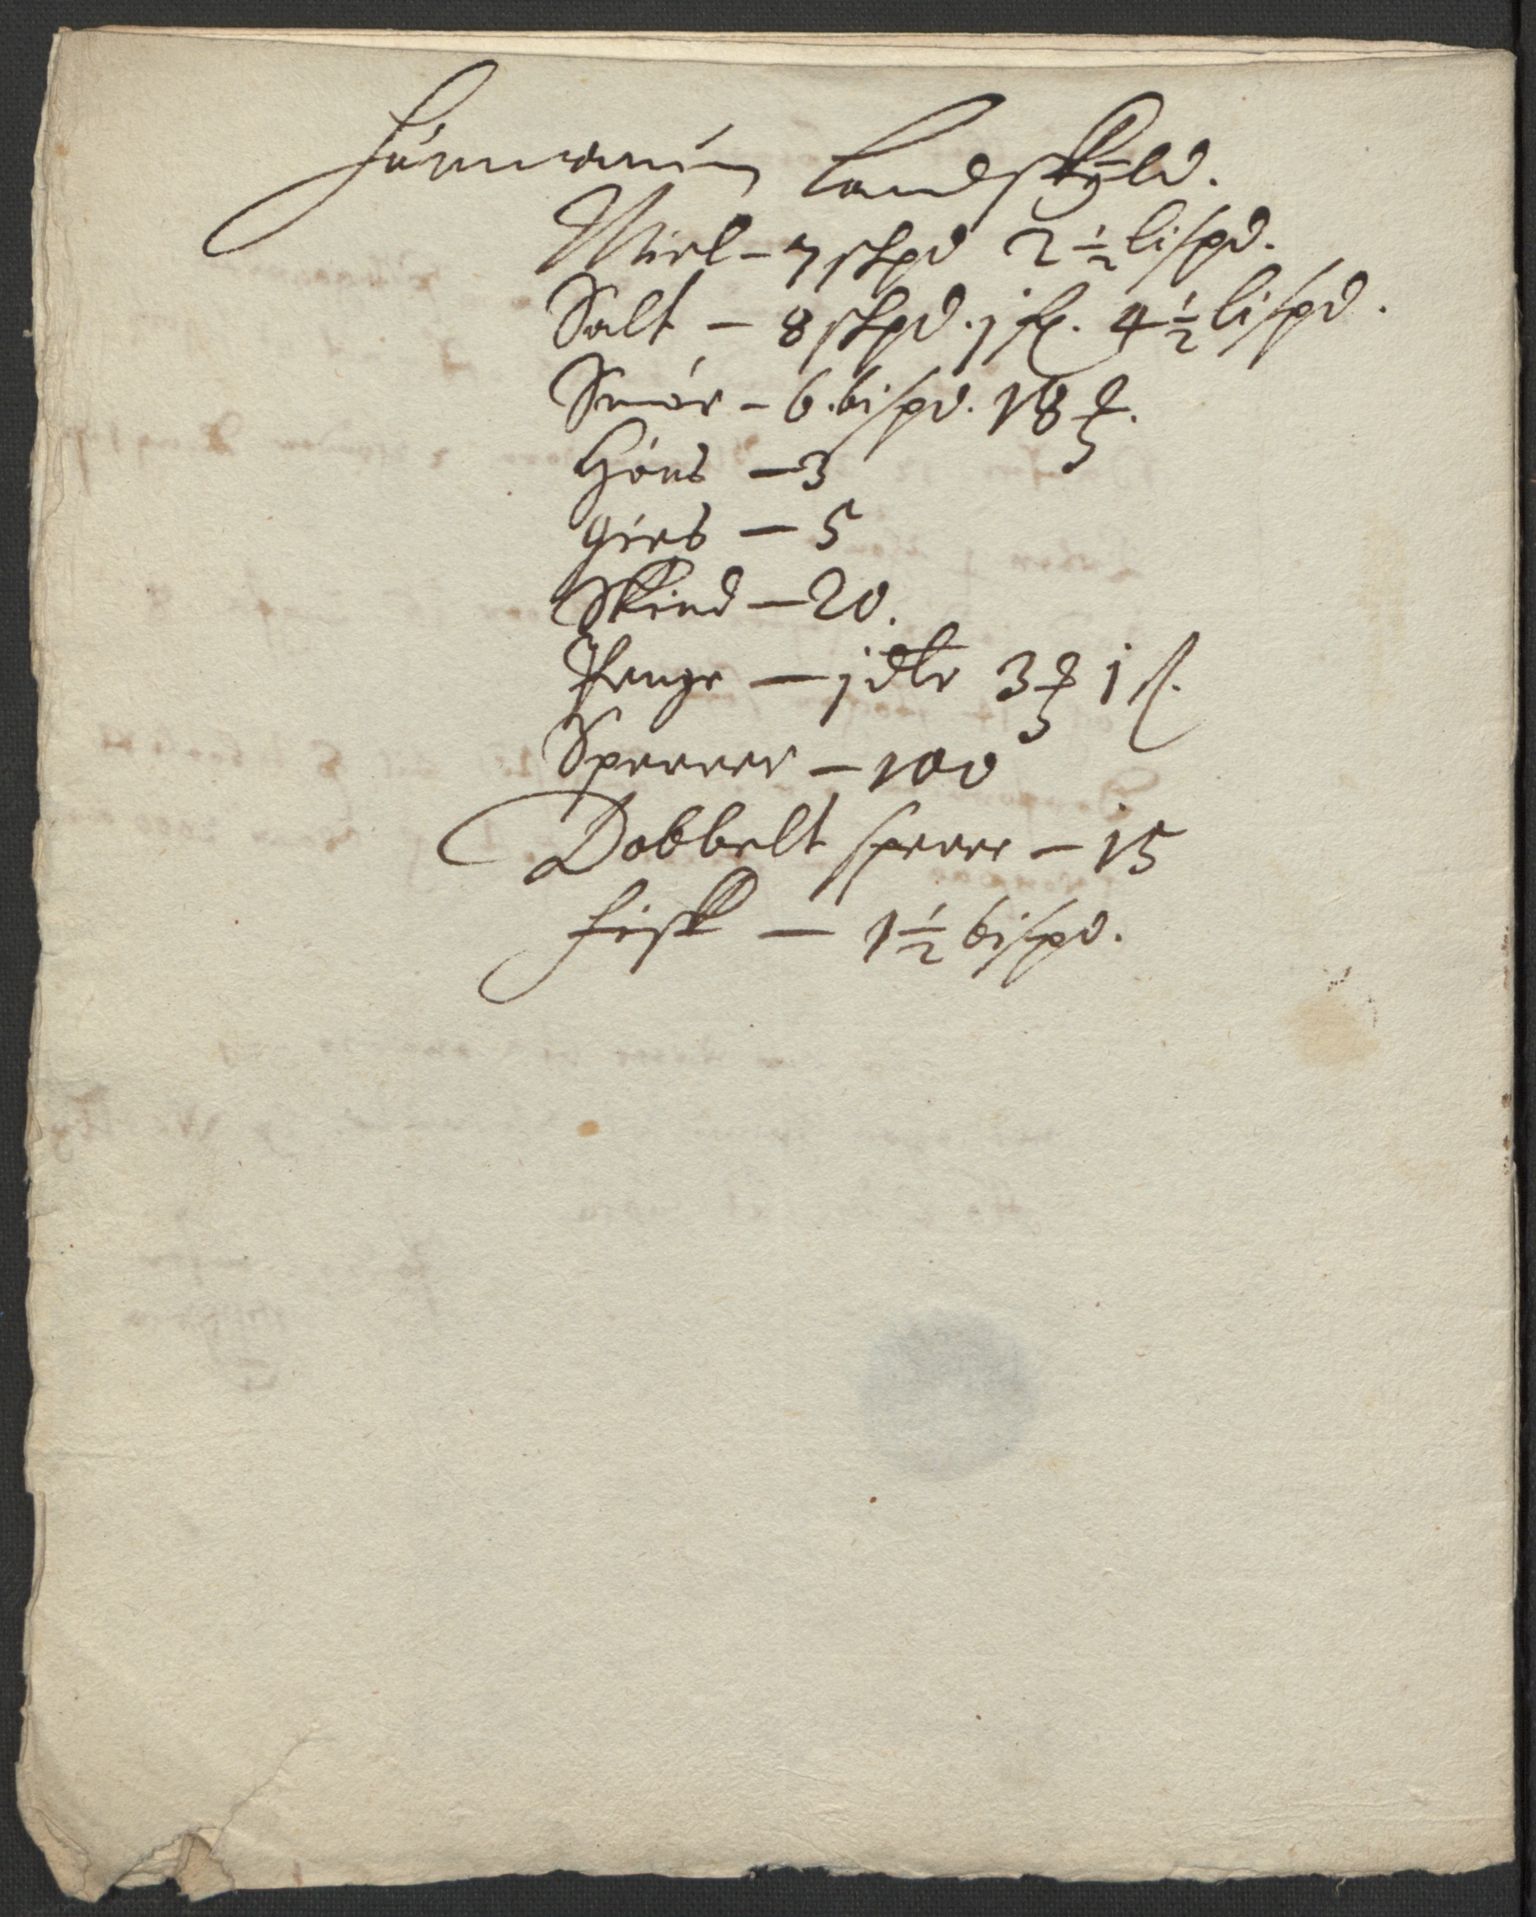 Summarum Landskÿld.
Miel - 7 skpd 2 1/2 lispd.
Salt - 8 skpd. j 4 1/2 lispd.
Smör - 6. bispd. 18
Höns - 3
gies - 5
Skind - 20.
Penge - j dlr 3 1 s.
Sperrer - 100
Dobbelt sperer - 15
fisk - 1 1/2 bispd.